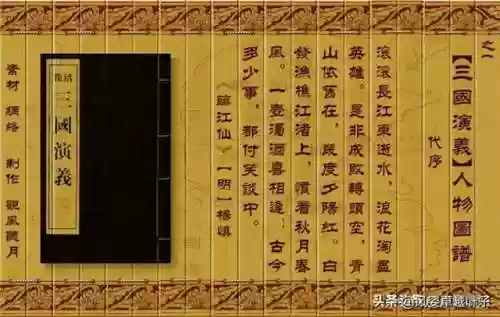 之一
【三國演義】人物圖譜
代序
滾滾長江東逝水，浪花淘盡
英雄。是非成敗轉頭空，青
山依舊在，幾度夕陽紅。白
發漁樵江渚上，慣看秋月春
風。一壺濁酒喜相逢，古今
多少事，都付笑談中。
《臨江仙》【明】楊慎
三國演義
素材 網絡 制作 觀風聽月
头条